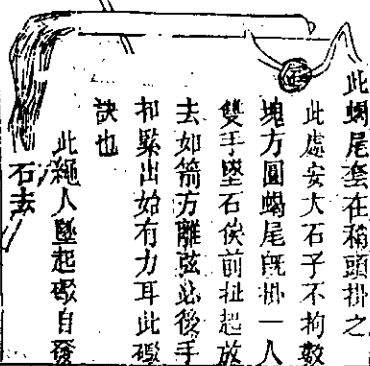 此蝎尾套在稍頭掛之
此處安大石子不拘數
塊方圓蝎尾旣掛一人
雙手墜石俟前扯起放
去如箭方離弦必後手
扣緊出始有力耳此礮
訣也
此繩人墜起礮自發
石去